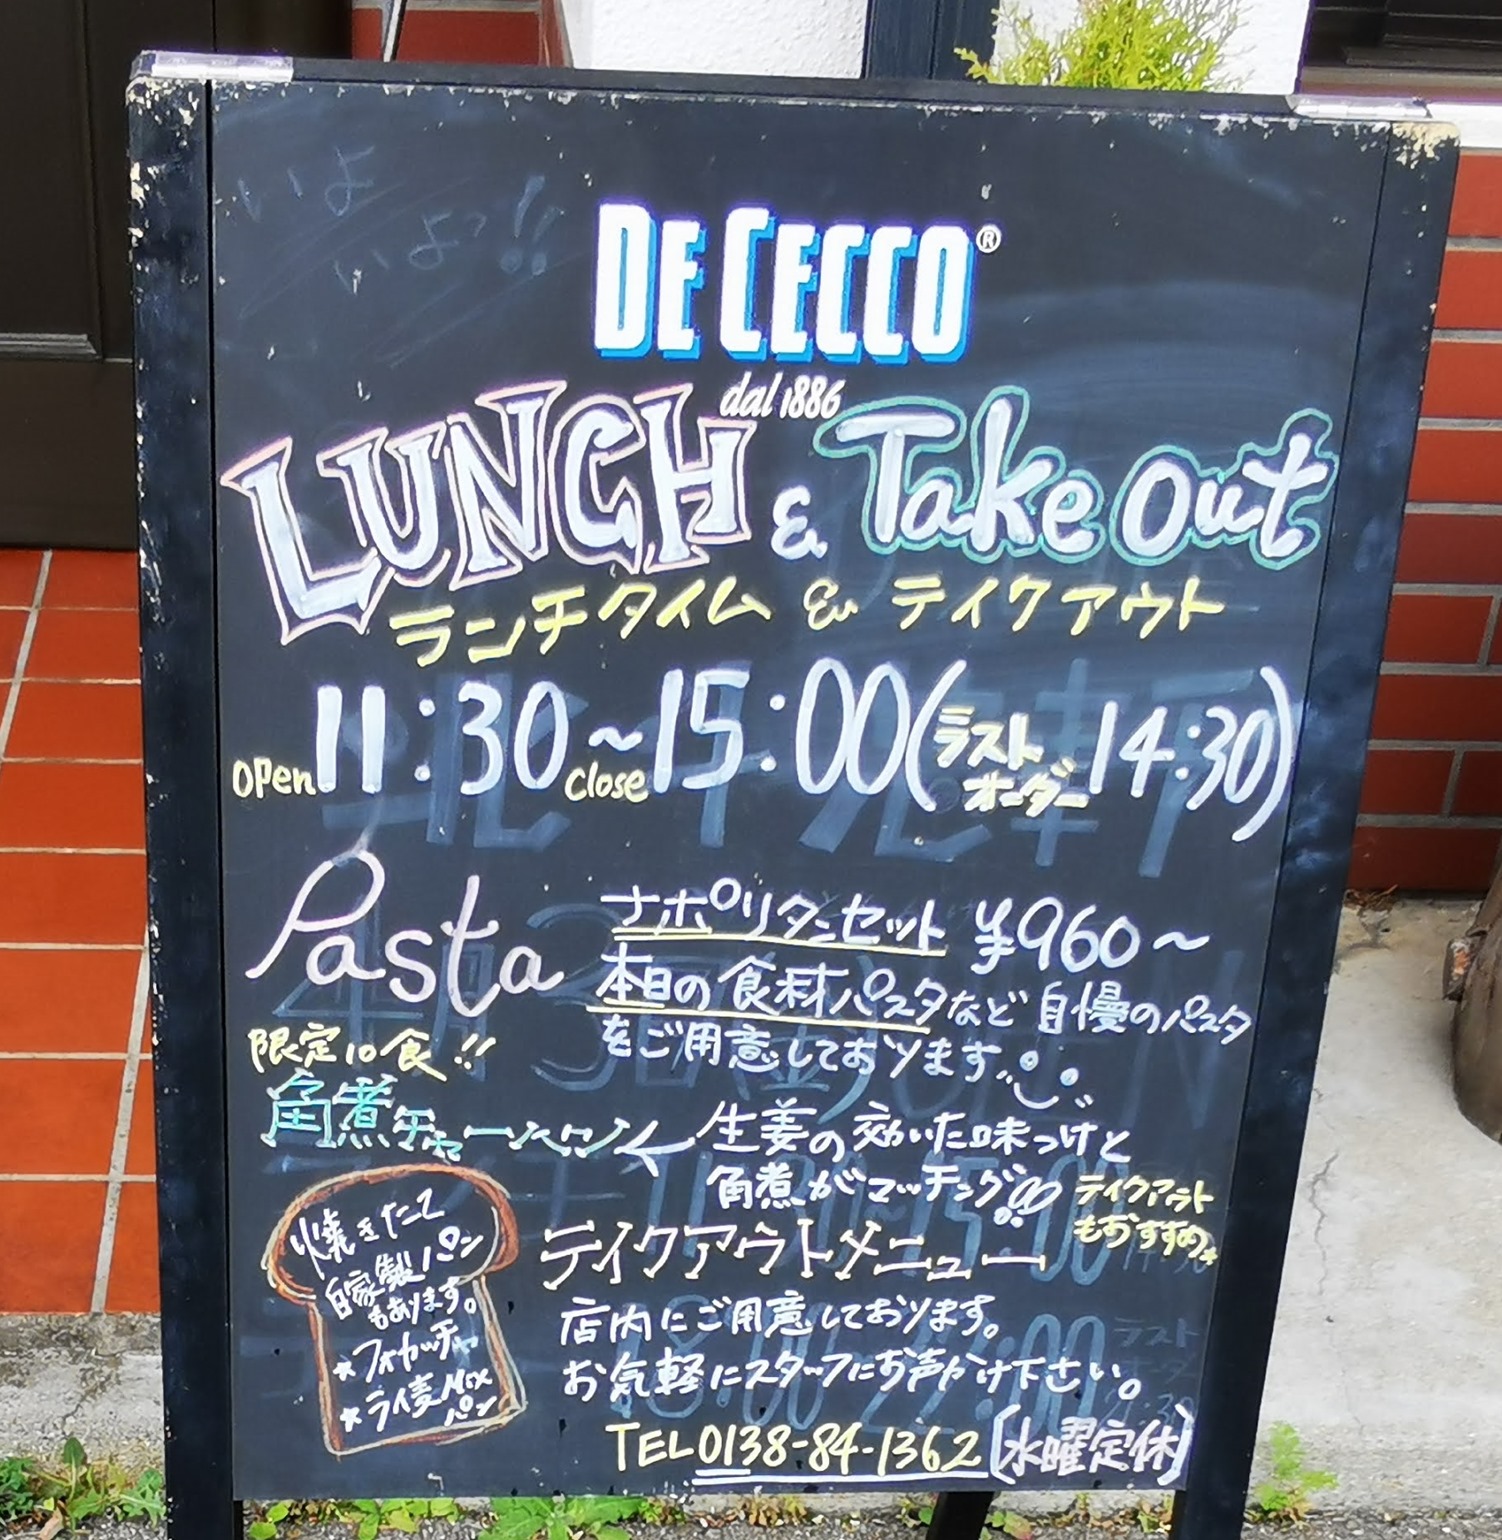 いよ
いよっ!!
DE CECCO®
dal 1886
LUNCH & Take Out
ランチタイム & テイクアウト
OPen 11:30～close 15:00(ラストオーダー14:30)
Pasta
ナポリタンセット ¥960～
本日の食材パスタなど自慢のパスタ
をご用意しております。
限定10食!!
角煮チャーハン
生姜の効いた味つけと
角煮がマッチング
テイクアウト
もおすすめ
焼きたて
自家製パン
もあります。
★フォカッチャ
★ライ麦Mix
パン
テイクアウトメニュー
店内にご用意しております。
お気軽にスタッフにお声かけ下さい。
TEL0138-84-1362[水曜定休]